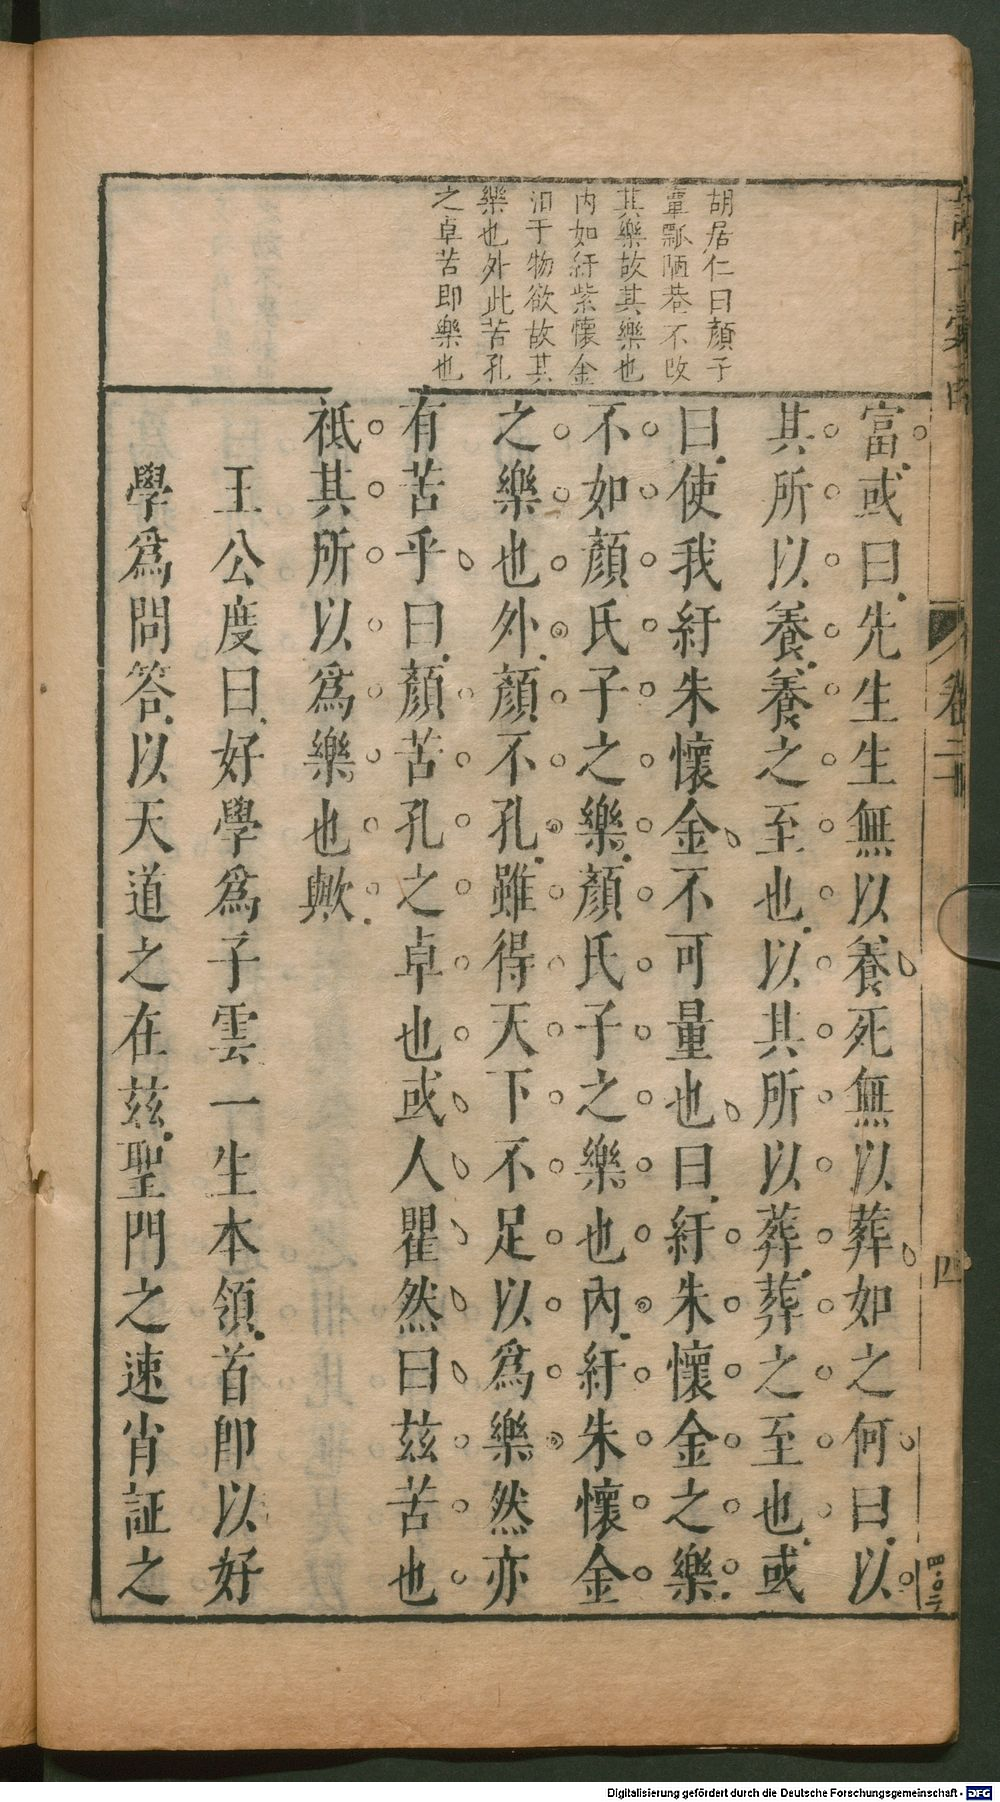 胡居仁曰顏子
簞瓢陋巷不改
其樂故其樂也
內如紆紫懷金
汩于物欲故其
樂也外此苦孔
之卓苦即樂也
富或曰先生生無以養死無以葬如之何曰以
其所以養養之至也以其所以葬葬之至也或
曰使我紆朱懷金不可量也曰紆朱懷金之樂
不如顏氏子之樂顏氏子之樂也內紆朱懷金
之樂也外顏不孔雖得天下不足以爲樂然亦
有苦乎曰顏苦孔之卓也或人瞿然曰茲苦也
祗其所以爲樂也歟
王公度曰好學爲子雲一生本領首卽以好
學爲問答以天道之在茲聖門之速肖証之
卷二
四
四·〇二
Digitalisierung gefördert durch die Deutsche Forschungsgemeinschaft - DFG